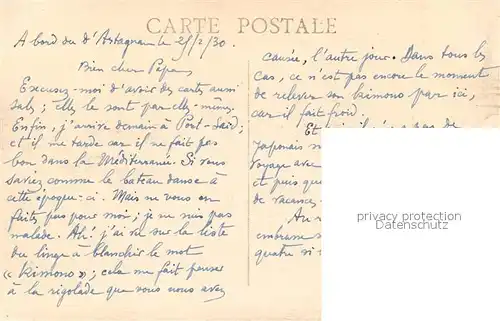 CARTE POSTALE
A bord du d'Artagnan le 25/2/30.
Bien cher Papa,
Excusez-moi d'avoir des cartes aussi
sales; elles le sont par elles-mêmes.
Enfin, j'arrive demain à Port-Saïd;
et il me tarde car il ne fait pas
bon dans la Méditerranée. Si vous
saviez comme le bateau danse à
cette époque-ci. Mais ne vous en
faites pas pour moi; je ne suis pas
malade. Ah! j'ai vu sur la liste
du linge à blanchir le mot
« Kimono »; cela me fait penser
à la rigolade que vous nous avez
causée, l'autre jour. Dans tous les
cas, ce n'est pas encore le moment
de relever son kimono par ici,
car il fait froid.
Et il n'y a pas de
Japonais
voyage avec
et puis que
de vacances.
Au
embrasse
quatre si
privacy protection
Datenschutz